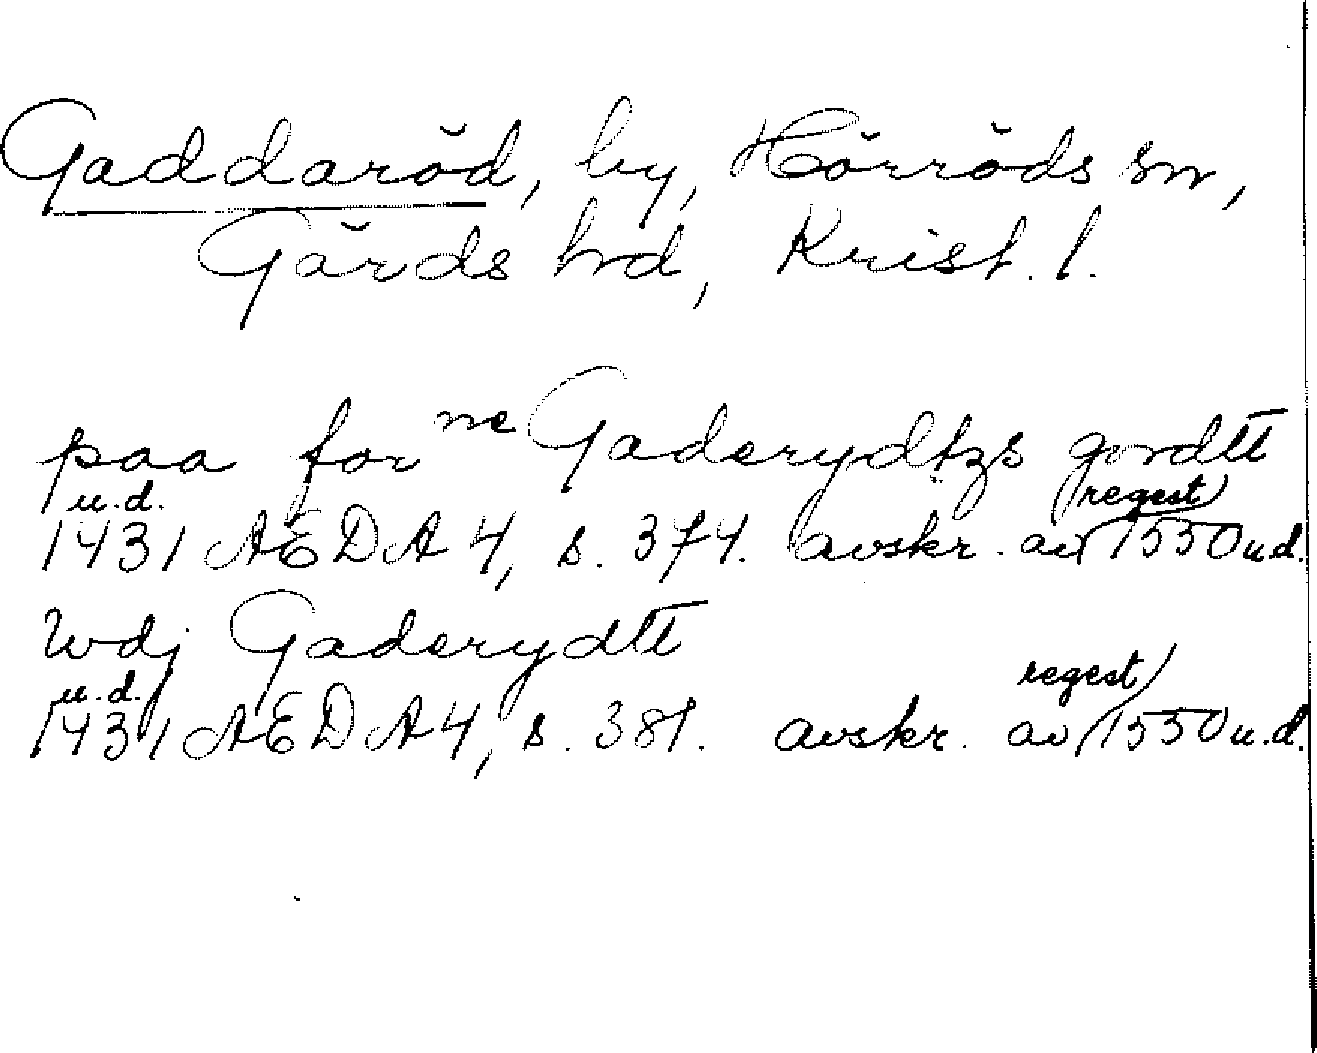 Gaddaröd, by, Hörröds sn,
Gärds hd, Krist. l.
paa for ne Gaderydtzs gordtt
u.d. (regest)
1431 AEDA 4, s. 374. avskr. av 1550 u.d.
Wdj Gaderydtt
u.d. regest
1431 AEDA 4, s. 381. avskr. av 1550 u.d.